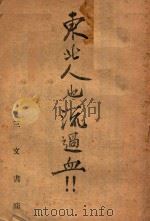 東北人也流過血!!
文書